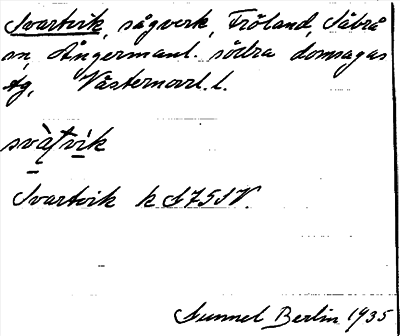 Svartvik, sågverk, Fröland, Säbrå
sn, Ångermanl. södra domsagas
tg, Västernorrl. l.
svàʈvìk
Svartvik k S7SSV.
Sunnel Berlin 1935